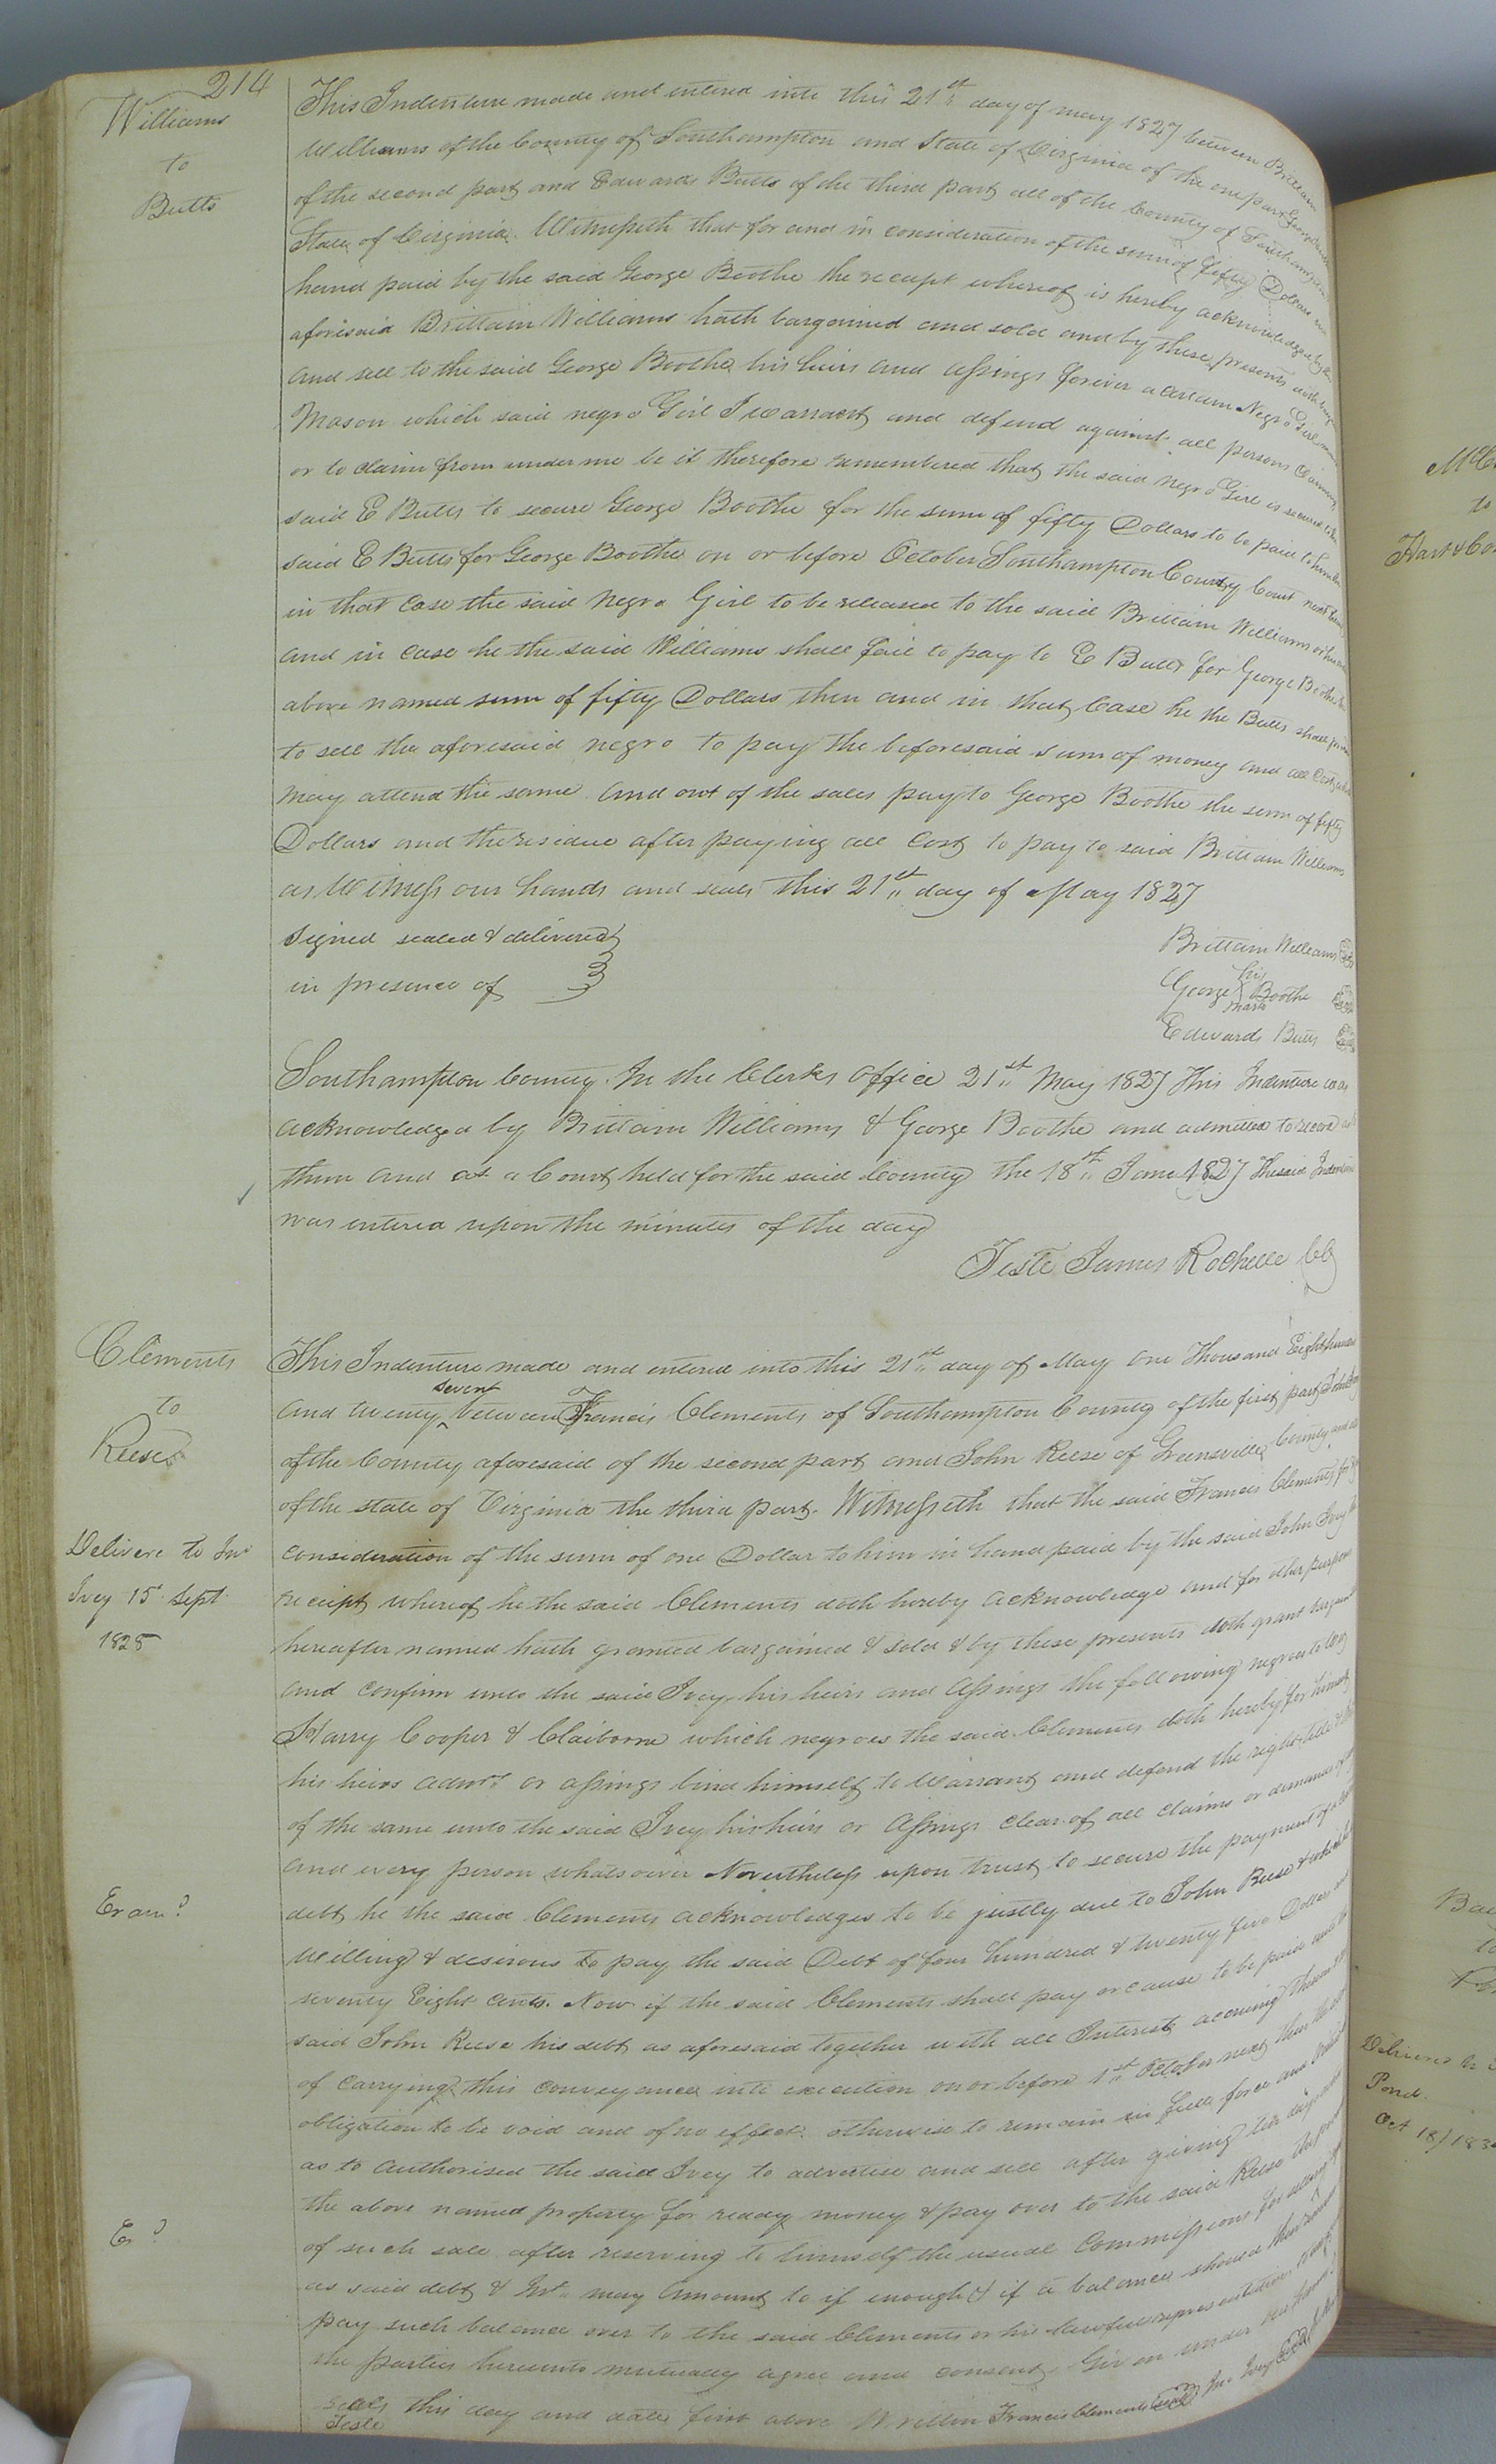 214
Williams
to
Butts
This Indenture made and entered into this 21st day of may 1827 between Brittain
Williams of the County of Southampton and State of Virginia of the one part George
of the second part and Edwards Butts of the third part all of the County of Southampton
State of Virginia. Witnesseth that for and in consideration of the sum of fifty Dollars in
hand paid by the said George Boothe the receipt whereof is hereby acknowledged by the
aforesaid Brittain Williams hath bargained and sold and by these presents doth
and sell to the said George Boothe his heirs and assings forever a certain Negro Girl
Mason which said negro Girl I warrant and defend against all persons claiming
or to claim from under me be it therefore remembered that the said negro Girl is
said E Butts to secure George Boothe for the sum of fifty Dollars to be paid to
said E Butts for George Boothe on or before October Southampton County Court next
in that case the said Negro Girl to be released to the said Brittain Williams
and in case he the said Williams shall fail to pay to E Butts for George Boothe
above named sum of fifty Dollars then and in that Case he the Butts shall
to sell the aforesaid negro to pay the beforesaid sum of money and all Cost
may attend the same and out of the sales pay to George Boothe the sum of fifty
Dollars and the residue after paying all Cost to pay to said Brittain Williams
as Witness our hands and seals this 21st day of May 1827
Signed sealed & delivered
in presence of
Brittain Williams
George his mark Boothe
Edwards Butts
Southampton County. In the Clerks office 21st May 1827 This Indenture was
acknowledged by Brittain Williams & George Boothe and admitted to record as to
them and at a Court held for the said County the 18th June 1827 The said Indenture
was entered upon the minutes of the day
Teste James Rochelle
Clements
to
Reese
Delivere to Jno
Ivey 15t Sept.
1828
This Indenture made and entered into this 21st day of May one Thousand Eight hundred
and twenty sevent between Francis Clements of Southampton County of the first part John Ivey
of the County aforesaid of the second part and John Reese of Greensville County and all
of the state of Virginia the third part. Witnesseth that the said Francis Clements for
consideration of the sum of one Dollar to him in hand paid by the said John Ivey the
receipt whereof he the said Clements doth hereby acknowledge and for other purposes
hereafter named hath granted bargained & sold & by these presents doth grant bargain
and confirm unto the said Ivey his heirs and assings the following negroes to wit
Harry Cooper & Claiborne which negroes the said Clements doth hereby for himself
his heirs admrs or assings bind himself to Warrant and defend the right title
of the same unto the said Ivey his heirs or assings clear of all claims or demands of
and every person whatsoever Nevertheless upon trust to secure the payment of a
debt he the said Clements acknowledges to be justly due to John Reese & which he
willing & desirous to pay the said Debt of four hundred & twenty five Dollars and
seventy Eight cents. Now if the said Clements shall pay or cause to be paid unto the
said John Reese his debt as aforesaid together with all Interest accruing thereon
of carrying this conveyance into execution on or before 1st October next then the
obligation to be void and of no effect. otherwise to remain in full force and
as to authorised the said Ivey to advertise and sell after giving ten days
the above named property for ready money & pay over to the said Reese
of such sale after reserving to himself the usual Commissions for
as said debt & Int. may amount to if enough & if a balance should
pay such balance over to the said Clements or his lawful representatives
the parties hereunto mutually agree and consent. Given under our hands
seals this day and date first above Written Francis Clements Jno Ivey
Teste
Exam?
Ex?
to